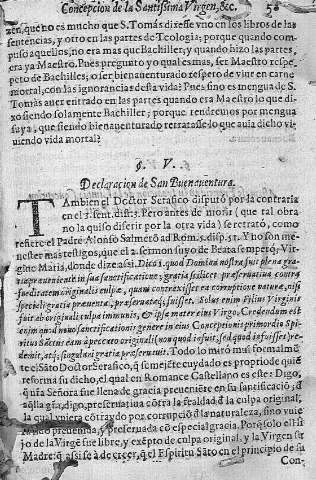 Concepcion de la Santissima Virgen, &c. 58
zen, que no es mucho que S. Tomàs dixesse vno en los libros de las
sentencias, y otro en las partes de Teologia; porque quando com-
puso aquellos, no era mas que Bachiller; y quando hizo las partes,
era ya Maestro. Pues pregunto yo qual es mas, ser Maestro respe-
peto de Bachiller; o ser bienauenturado respeto de viuir en carne
mortal, con las ignorancias desta vida? Pues sino es mengua de S.
Tomàs auer entrado en las partes quando era Maestro lo que di-
xo siendo solamente Bachiller; porque tendremos por mengua
suya, que siendo bienauenturado retratasse lo que auia dicho vi-
uiendo vida mortal?
§. V.
Declaracion de San Buenauentura.
TAmbien el Doctor Serafico disputò por la contraria
en el 3. sent. dist. 3. Pero antes de morir (que tal obra
no la quiso diferir por la otra vida) se retratò, como
refiere el Padre Alonso Salmerō ad Rom. 5. disp. 51. Y no son me-
nester mas testigos, que el 2. sermon suyo de Beata semper q̄ Vir-
gine Maria, donde dize assi. Dico 1. quod Domina nostra fuit plena gra-
tia præueniente in sua sanctificatione, gratia scilicet præseruatiua contra
fœditatem originalis culpæ, quam contraxisset ex corruptione naturæ, nisi
speciali gratia præuenta, præseruataq; fuisset. Solus enim Filius Virginis
fuit ab originali culpa immunis, & ipsa mater eius Virgo. Credendum est
enim quod nouo sanctificationis genere in eius Conceptionis primordio Spi-
ritus Sanctus eam à peccato originali (non quod infuit, sed quod infuisset) re-
demit, atq; singulari gratia præseruauit. Todo lo mirò muy formalmēte
el sāto Doctor Serafico, q̄ se mejāte cuydado es proprio de quē
reforma su dicho, el qual en Romance Castellano es este: Digo,
q̄ nr̄a Señora fue llena de gracia preueniente en su santificaciō, d̄
aq̄lla gr̄a, digo, preseruatiua cōtra la fealdad d̄ la culpa original;
la qual vuiera cōtraydo por corrupciō d̄ la naturaleza, sino vuie-
sido preuenida, y preseruada cō especial gracia. Porq̄ solo el Hi-
jo de la Virgē fue libre, y exēpto de culpa original, y la Virgen su
Madre: q̄ assi se à de creer, q̄ el Espiritu Sāto en el principio de su
Con-